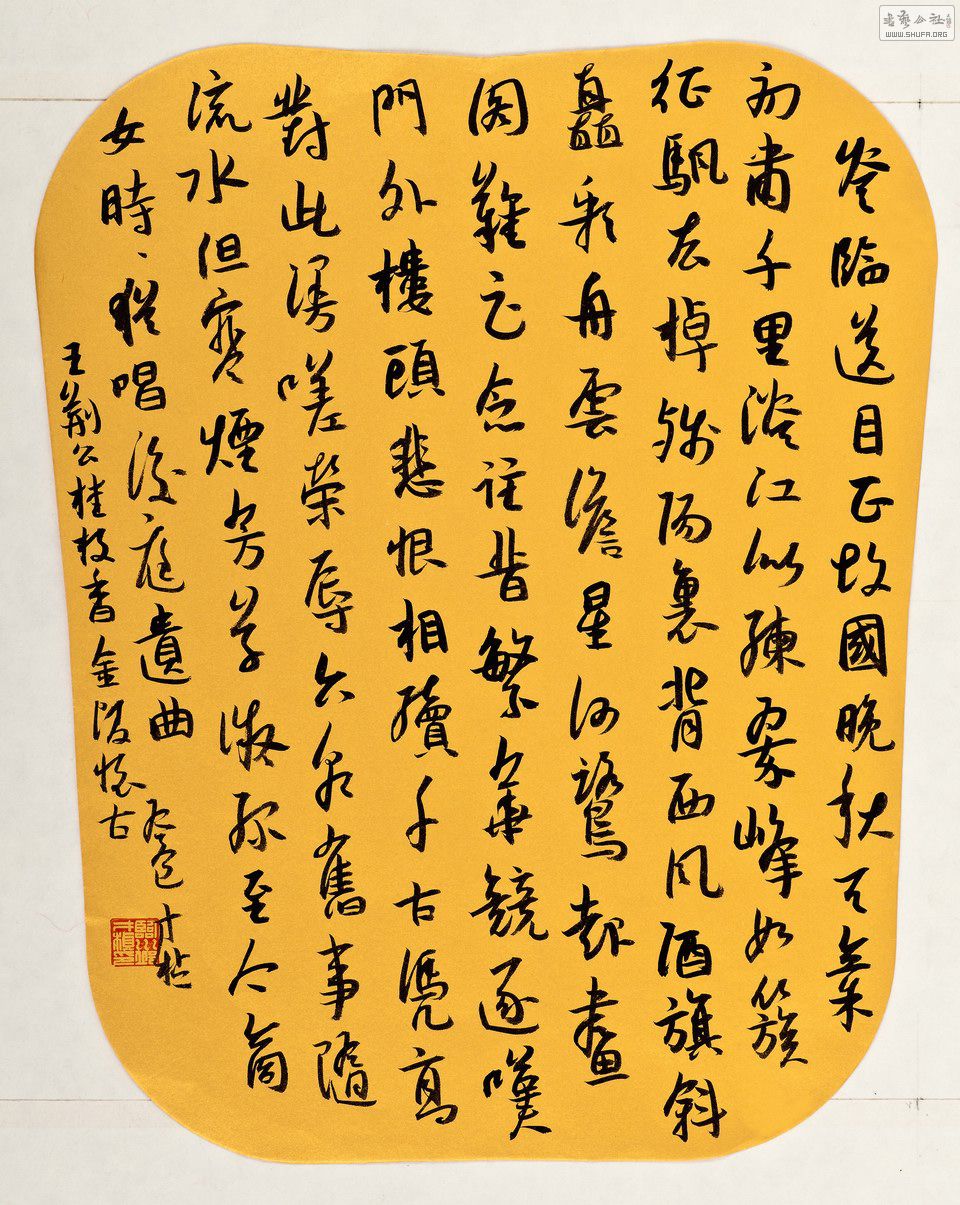 登臨送目正故國晚秋天氣
初肅千里澄江似練翠峰如簇
征颿去棹殘陽裏背西風酒旗斜
矗彩舟雲澹星河鷺起畫
圖難足念往昔繁華競逐嘆
門外樓頭悲恨相續千古憑高
對此漫嗟榮辱六朝舊事隨
流水但寒煙芳草凝綠至今商
女時、猶唱後庭遺曲
王荊公桂枝香金陵懷古
書藝公社
WWW.SHUFA.ORG